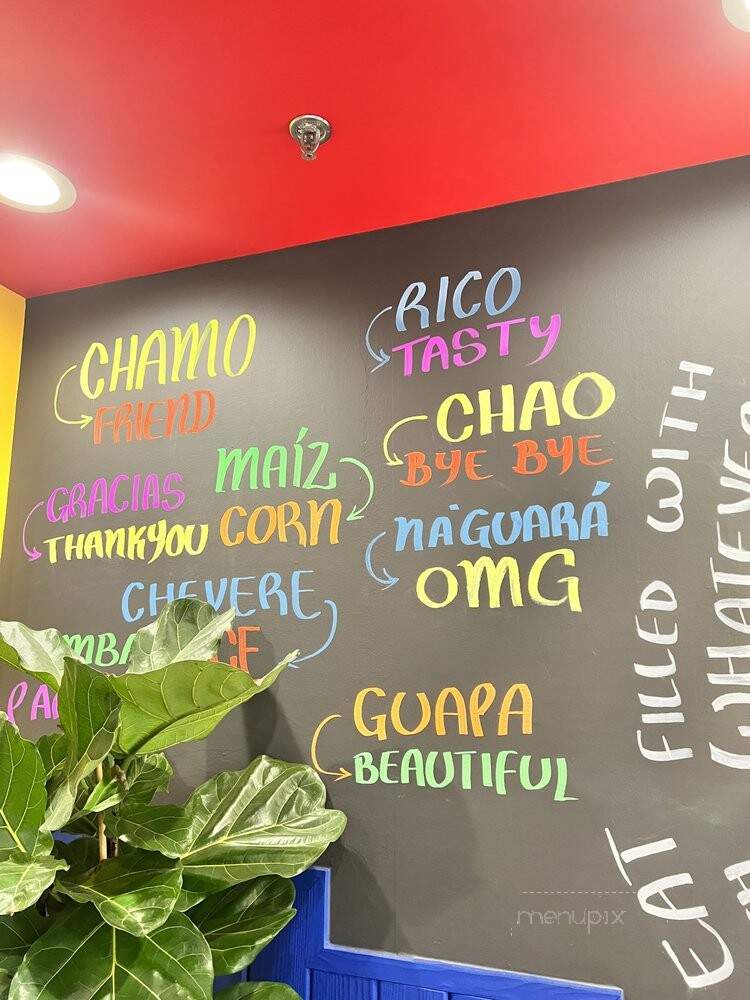 CHAMO
FRIEND
GRACIAS
THANKYOU
MAÍZ
CORN
CHEVERE
RICO
TASTY
CHAO
BYE BYE
NA'GUARÁ
OMG
GUAPA
BEAUTIFUL
FILLED WITH
EAT
menupix